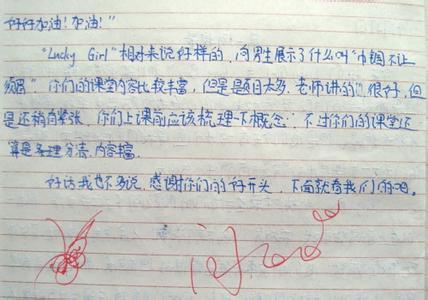 好好加油！加油！"
"Lucky Girl"相对来说好样的，向男生展示了什么叫"巾帼不让
须眉"，你们的课堂内容比较丰富，但是题目太多，老师讲的很好，但
是还稍自紧张，你们上课前应该梳理一下概念，不过你们的课堂还
算是条理分清，内容丰富。
好话我也不多说，感谢你们的好开头，下面就看我们的吧。